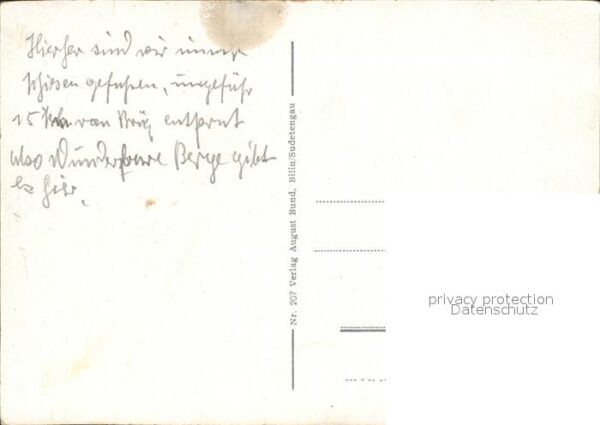 Hierher sind wir immer
gefahren, ungefähr
15 Km von Brüx entfernt
also Wunderbare Berge gibt
es hier.
Nr. 207 Verlag August Bund, Bilin/Sudetengau
privacy protection
Datenschutz